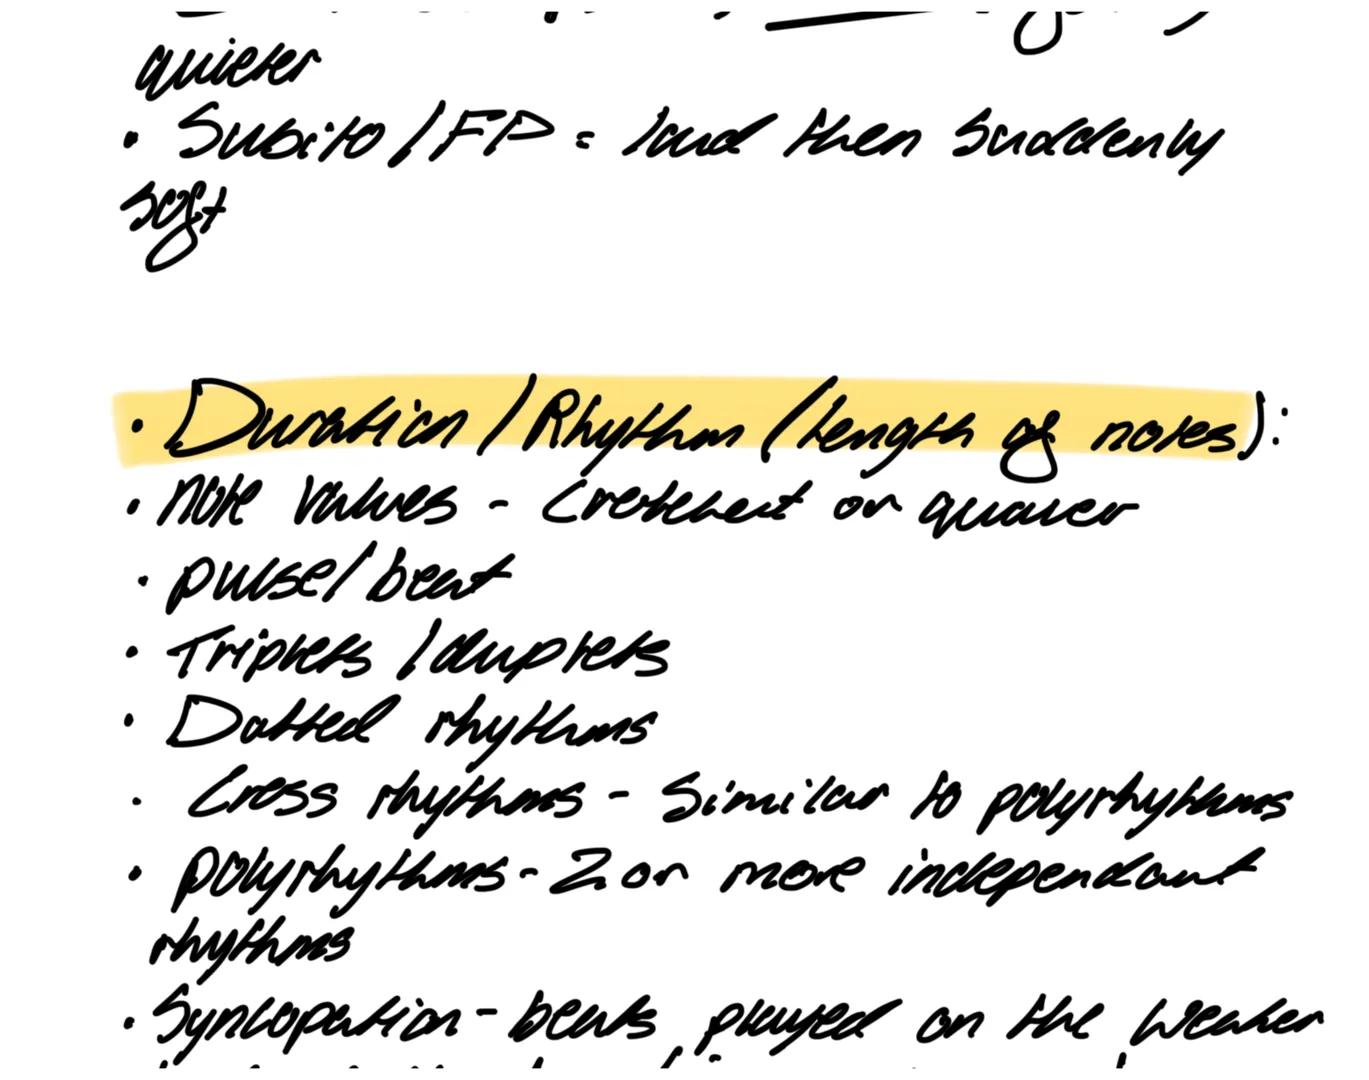 quieter
• Subito/FP = loud then suddenly
soft
• Duration/Rhythm (length of notes):
• note values - Cretchect or quaver
• pulse/beat
• Triplets/duplets
• Dotted rhythms
• Cross rhythms - Similar to polyrhythms
• polyrhythms - 2 or more independant
rhythms
• Syncopation - beats played on the weaker